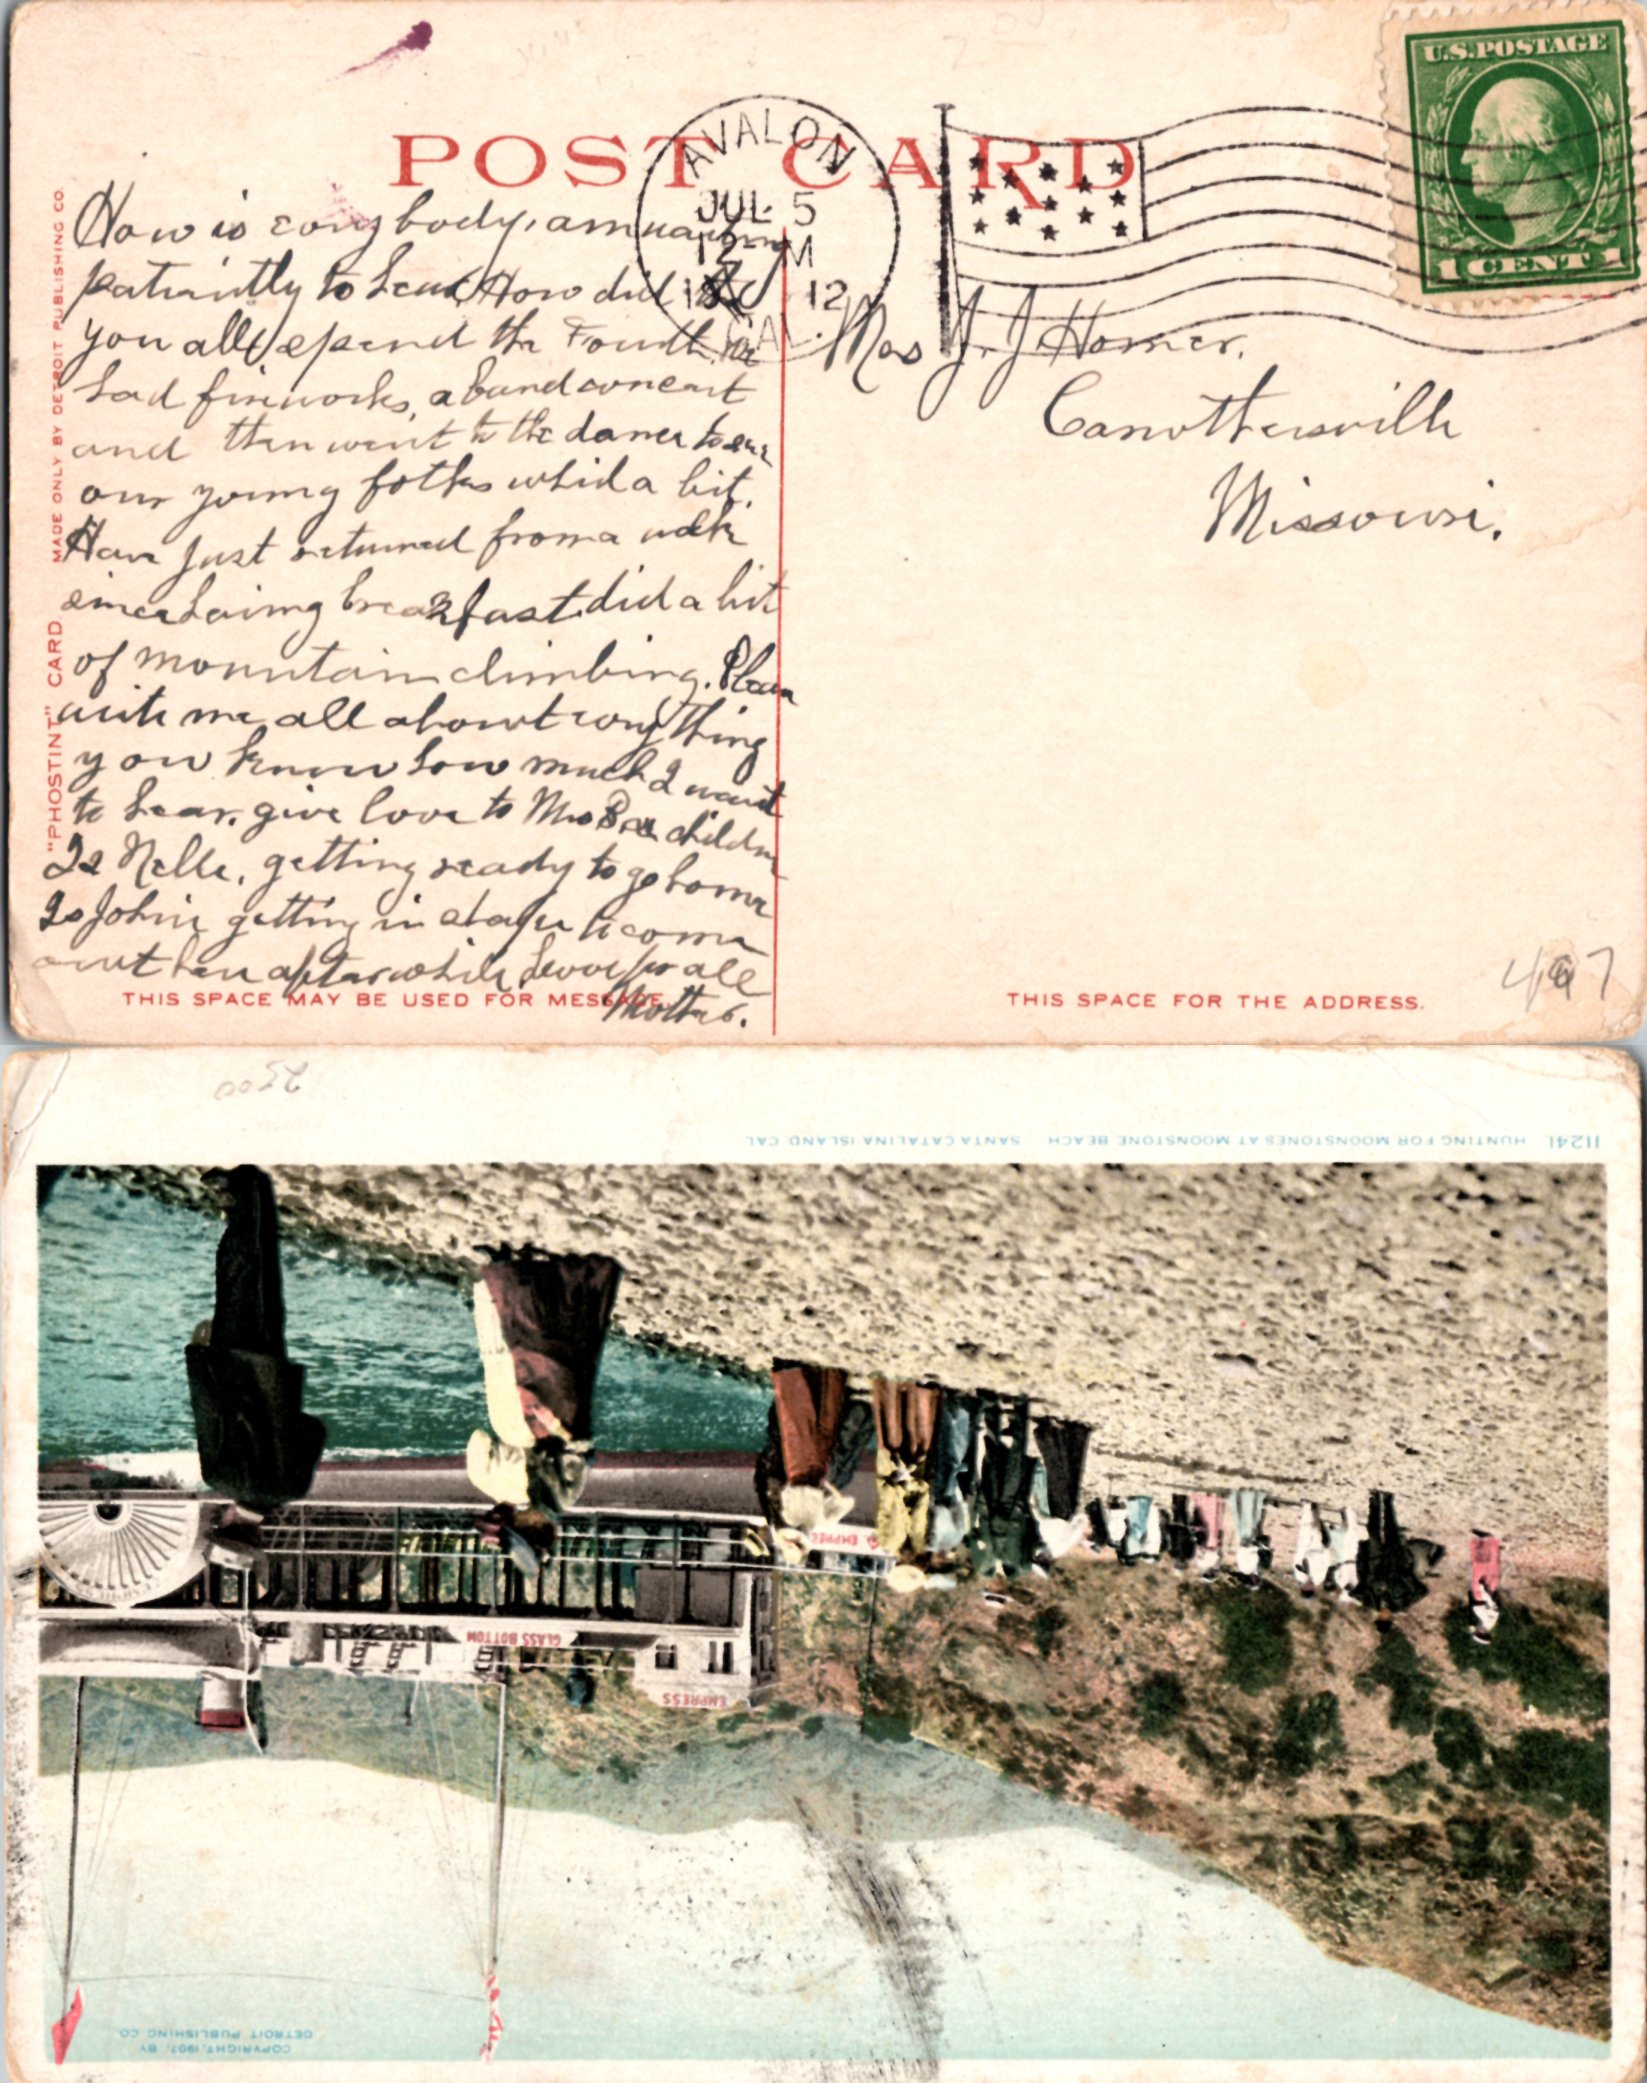 POST CARD
AVALON
JUL 5
12 M
1912
CAL.
U.S. POSTAGE
1 CENT 1
"PHOSTINT" CARD. MADE ONLY BY DETROIT PUBLISHING CO.
How is everybody, am waiting
patiently to hear. How did
you all spend the Fourth. We
had fireworks, a band concert
and then went to the dance to see
our young folks whirl a bit.
Have just returned from a walk
since having breakfast. did a bit
of mountain climbing. Please
write me all about everything
you know how much I want
to hear. give love to Mrs children
Is Nelle, getting ready to go home
Is John getting in shape to come
out here after while. Love for all
Mother.
Mrs J. J. Homer.
Caruthersville
Missouri.
THIS SPACE MAY BE USED FOR MESSAGE.
THIS SPACE FOR THE ADDRESS.
11241. HUNTING FOR MOONSTONES AT MOONSTONE BEACH SANTA CATALINA ISLAND CAL
EMPRESS
GLASS BOTTOM
COPYRIGHT, 1907, BY
DETROIT PUBLISHING CO.